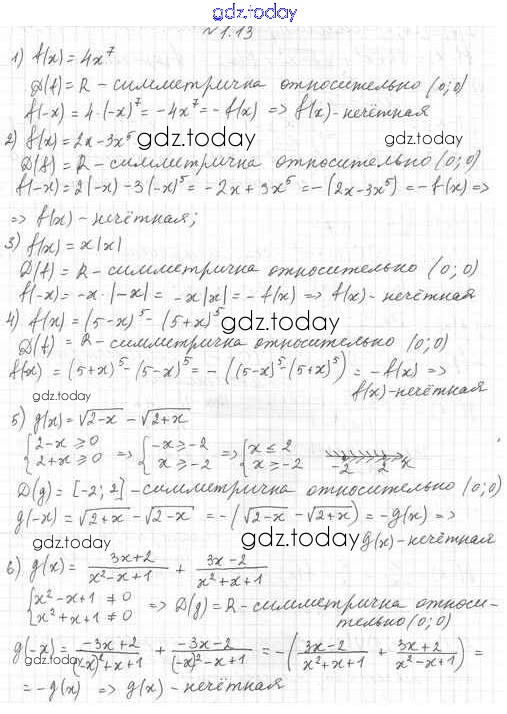 gdz.today
№1.13
1) f(x) = 4x⁷
D(f) = R - симметрична относительно (0;0)
f(-x) = 4·(-x)⁷ = -4x⁷ = -f(x) => f(x) - нечётная
gdz.today
2) f(x) = 2x - 3x⁵
gdz.today
D(f) = R - симметрична относительно (0;0)
f(-x) = 2(-x) - 3(-x)⁵ = -2x + 3x⁵ = -(2x - 3x⁵) = -f(x) =>
=> f(x) - нечётная;
3) f(x) = x|x|
D(f) = R - симметрична относительно (0;0)
f(-x) = -x·|-x| = -x|x| = -f(x) => f(x) - нечётная
4) f(x) = (5-x)⁵ - (5+x)⁵
gdz.today
D(f) = R - симметрична относительно (0;0)
f(x) = (5+x)⁵ - (5-x)⁵ = -((5-x)⁵ - (5+x)⁵) = -f(x) =>
f(x) - нечётная
gdz.today
5) g(x) = √2-x - √2+x
{2-x ≥ 0 => {-x ≥ -2 => {x ≤ 2
2+x ≥ 0 x ≥ -2 x ≥ -2 -2 2 x
D(g) = [-2; 2] - симметрична относительно (0;0)
g(-x) = √2+x - √2-x = -(√2-x - √2+x) = -g(x) =>
gdz.today
gdz.today
g(x) - нечётная
6) g(x) = (3x+2)/(x²-x+1) + (3x-2)/(x²+x+1)
{x²-x+1 ≠ 0
x²+x+1 ≠ 0 => D(g) = R - симметрична относи-
тельно (0;0)
g(-x) = (-3x+2)/((-x)²+x+1) + (-3x-2)/((-x)²-x+1) = -((3x-2)/(x²+x+1) + (3x+2)/(x²-x+1)) =
gdz.today
gdz.today
= -g(x) => g(x) - нечётная